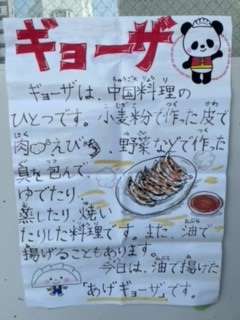 ギョーザ
ギョーザは、中国料理の
ひとつです。小麦粉で作った皮で
肉やえび、野菜などで作った
具を包んで、
ゆでたり、
蒸したり、焼い
たりした料理です。また、油で
揚げることもあります。
今日は、油で揚げた
「あげギョーザ」です。